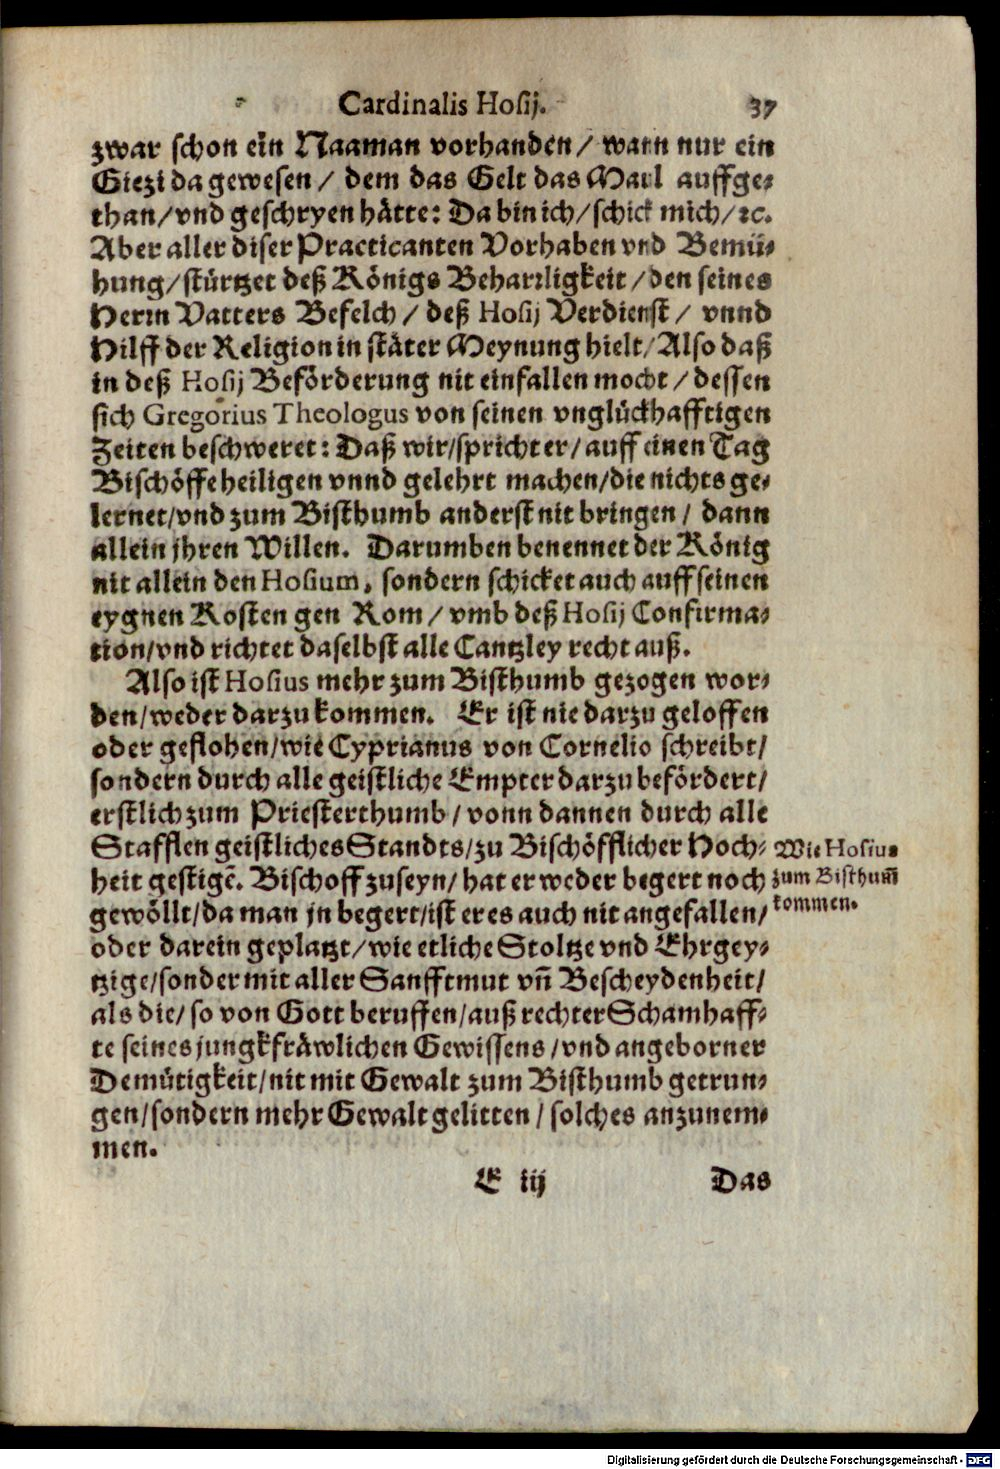 Cardinalis Hosij. 37
zwar schon ein Naaman vorhanden / wann nur ein
Giezi da gewesen / dem das Gelt das Maul auffge-
than / vnd geschryen hätte: Da bin ich / schick mich / ꝛc.
Aber aller diser Practicanten Vorhaben vnd Bemü-
hung / stürtzet deß Königs Beharrligkeit / den seines
Herrn Vatters Befelch / deß Hosij Verdienst / vnnd
Hilff der Religion in stäter Meynung hielt / Also daß
in deß Hosij Beförderung nit einfallen mocht / dessen
sich Gregorius Theologus von seinen vnglückhafftigen
Zeiten beschweret: Daß wir / spricht er / auff einen Tag
Bischöffe heiligen vnnd gelehrt machen / die nichts ge-
lernet / vnd zum Bisthumb anderst nit bringen / dann
allein jhren Willen. Darumben benennet der König
nit allein den Hosium, sondern schicket auch auff seinen
eygnen Kosten gen Rom / vmb deß Hosij Confirma-
tion / vnd richtet daselbst alle Cantzley recht auß.
Also ist Hosius mehr zum Bisthumb gezogen wor-
den / weder darzu kommen. Er ist nie darzu geloffen
oder geflohen / wie Cyprianus von Cornelio schreibt /
sondern durch alle geistliche Empter darzu befördert /
erstlich zum Priesterthumb / vonn dannen durch alle
Stafflen geistliches Standts / zu Bischöfflicher Hoch-
heit gestigẽ. Bischoff zuseyn / hat er weder begert noch
gewöllt / da man jn begert / ist er es auch nit angefallen /
oder darein geplatzt / wie etliche Stoltze vnd Ehrgey-
tzige / sonder mit aller Sanfftmut vñ Bescheydenheit /
als die / so von Gott beruffen / auß rechter Schamhaff-
te seines jungkfräwlichen Gewissens / vnd angeborner
Demütigkeit / nit mit Gewalt zum Bisthumb getrun-
gen / sondern mehr Gewalt gelitten / solches anzunem-
men.
Wie Hosius
zum Bisthum̃
kommen.
E iij Das
Digitalisierung gefördert durch die Deutsche Forschungsgemeinschaft - DFG